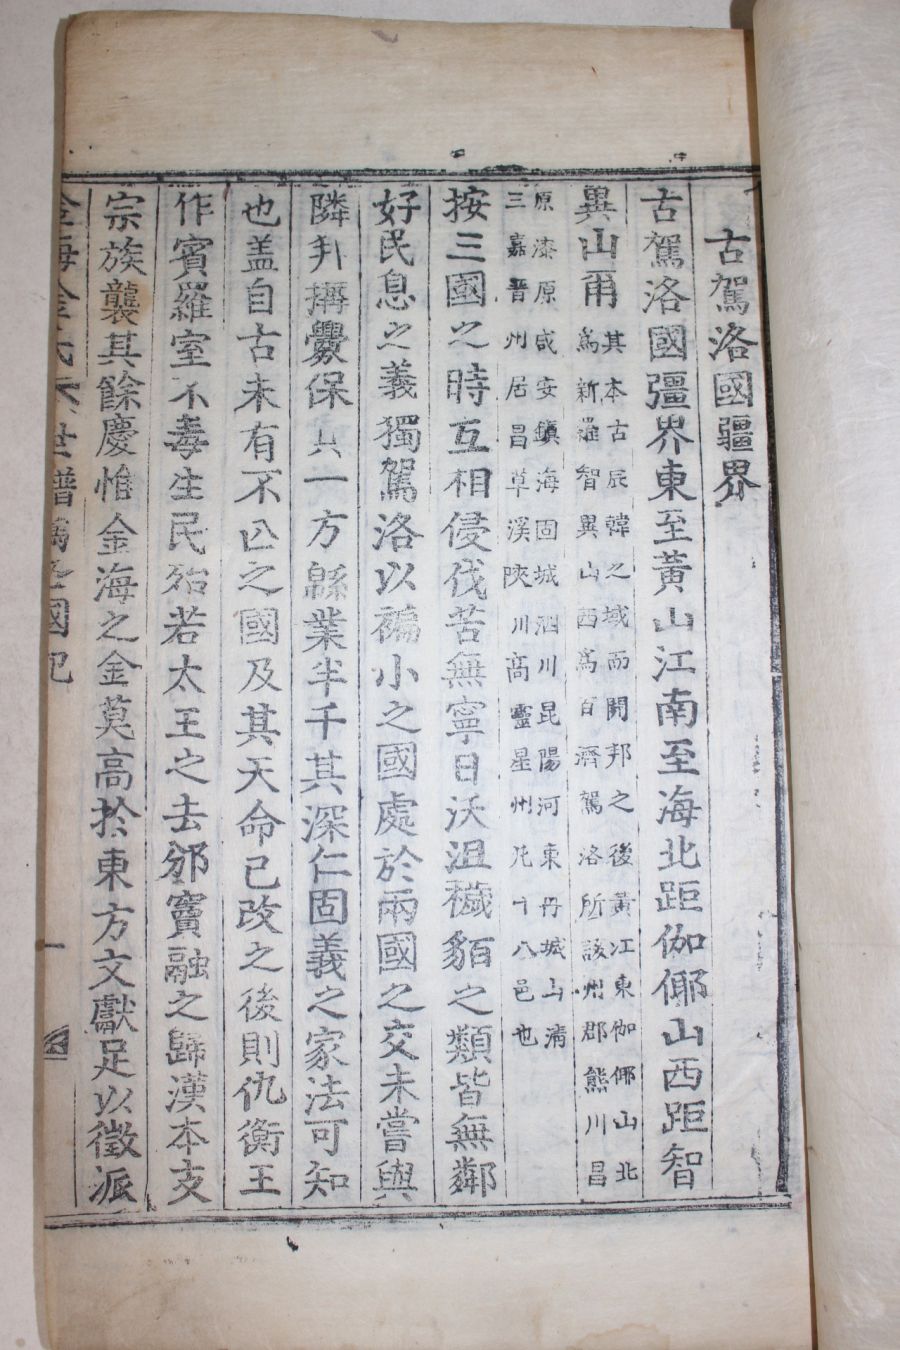 古駕洛國疆界
古駕洛國疆界東至黃山江南至海北距伽倻山西距智
異山爾
其本古辰韓之域而開邦之後黃江東伽倻山北
爲新羅智異山西爲百濟駕洛所該州郡熊川昌
原漆原咸安鎭海固城泗川昆陽河東丹城山淸
三嘉晋州居昌草溪陜川高靈星州凡十八邑也
按三國之時互相侵伐苦無寧日沃沮穢貊之類皆無鄰
好民息之義獨駕洛以褊小之國處於兩國之交未嘗與
隣爿搆釁保其一方緜業半千其深仁固義之家法可知
也盖自古未有不亾之國及其天命已改之後則仇衡王
作賓羅室不毒生民殆若太王之去邠竇融之歸漢本支
宗族襲其餘慶惟金海之金莫高於東方文獻足以徵派
金海金氏 世譜 國記 一